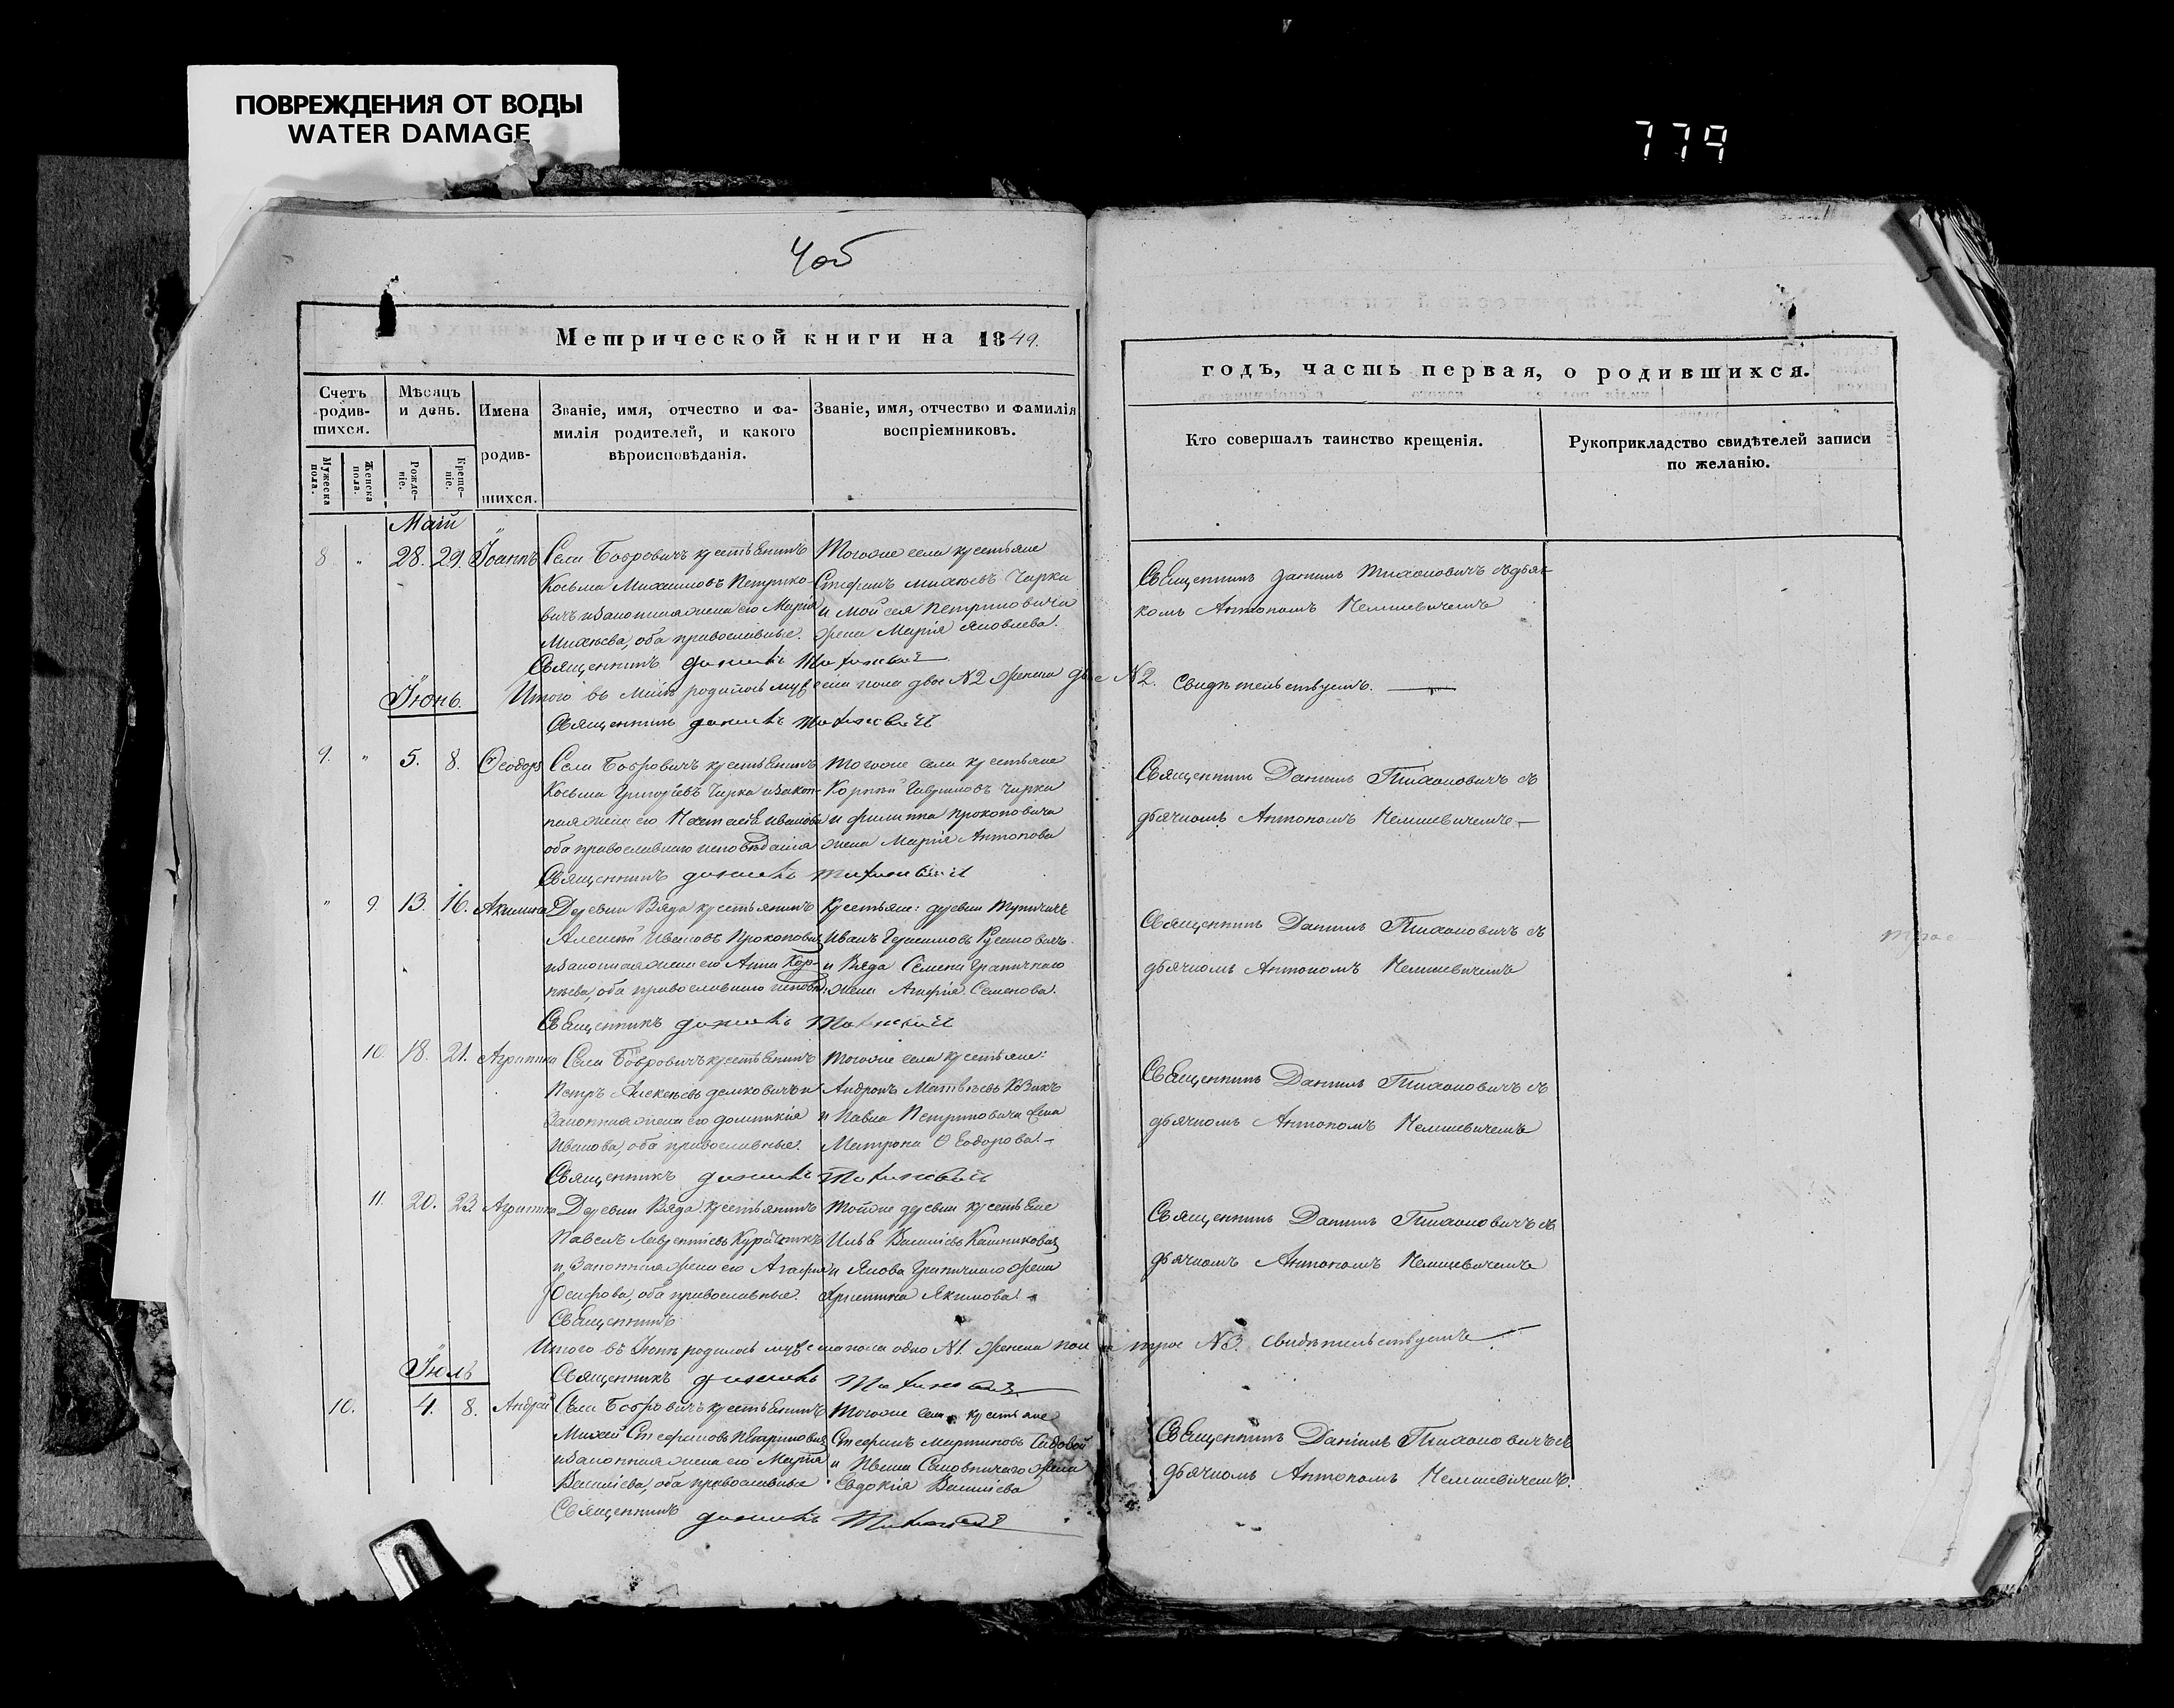 ПОВРЕЖДЕНИЯ ОТ ВОДЫ
WATER DAMAGE
779
4об
Метрической книги на 1849.
Счетъ родив-шихся.
Мужеска пола.
Женска пола.
Мѣсяцъ и день.
Рожде-ніе.
Креще-ніе.
Имена родив-шихся.
Званіе, имя, отчество и фа-
милія родителей, и какого
вѣроисповѣданія.
Званіе, имя, отчество и фамилія
воспріемниковъ.
годъ, часть первая, о родившихся.
Кто совершалъ таинство крещенія.
Рукоприкладство свидѣтелей записи
по желанію.
Май
8 " 28. 29. Іоаннъ
Села Бобровичъ крестьянинъ
Козьма Михеиловъ Петрико-
вичъ и законная жена его Марія
Михѣева, оба православные.
Священникъ Данилъ Тихоновичъ
Тогоже села крестьяне
Стефанъ Михѣевъ Чирка
и Мойсея Петриповича
жена Марія Яковлева.
Священникъ Данилъ Тихоновичъ съ дьяч-
комъ Антономъ Немшевичемъ
Итого въ Маѣ родилось мужеска пола двое №2 женска двѣ №2. свидѣтельствуемъ.
Священникъ Данилъ Тихоновичъ
Іюнь.
9. " 5. 8. Ѳеодоръ
Села Бобровичъ крестьянинъ
Козьма Григорьевъ Чирка и закон-
ная жена его Настасія Иванова
оба православнаго исповѣданія
Священникъ Данилъ Тихоновичъ
Тогоже села крестьяне
Корнѣй Гавриловъ Чирка
и Филиппа Прокоповича
жена Марія Антонова
Священникъ Данилъ Тихоновичъ съ
дьячкомъ Антономъ Немшевичемъ
" 9 13. 16. Акилина
Деревни Вяда крестьянинъ
Алексѣй Ивановъ Прокоповичъ
и законная жена его Анна Кор-
нѣева, оба православнаго исповѣд.
Священникъ Данилъ Тихоновичъ
Крестьяне: деревни Тупичичъ
Иванъ Герасимовъ
и Вяда Семена Граничнаго
жена Агафія Семенова.
Священникъ Данилъ Тихоновичъ съ
дьячкомъ Антономъ Немшевичемъ
10. 18. 21. Агрипина
Села Бобровичъ крестьянинъ
Петръ Алексѣевъ Демковичъ и
законная жена его Домникія
Иванова, оба православные.
Священникъ Данилъ Тихоновичъ
Тогоже села крестьяне:
Андронъ Матвѣевъ Козакъ
и Павла Петриповича жена
Матрона Ѳеодорова.
Священникъ Данилъ Тихоновичъ съ
дьячкомъ Антономъ Немшевичемъ
11. 20. 23 Агрипина
Деревни Вяда крестьянинъ
Павелъ Лаврентіевъ
и законная жена его Агафія
Осифова, оба православные.
Священникъ
Тойже деревни крестьяне
Илья Василіевъ
и Якова Граничнаго жена
Христина Якимова.
Священникъ Данилъ Тихоновичъ съ
дьячкомъ Антономъ Немшевичемъ
Итого въ Іюнѣ родилось мужеска пола одно №1. женска пола трое №3. свидѣтельствуемъ
Священникъ Данилъ Тихоновичъ
Іюль
10. 4. 8. Андрей
Села Бобровичъ крестьянинъ
Михей Стефановъ Петриповичъ
и законная жена его Марта
Василіева, оба православные
Священникъ Данилъ Тихоновичъ
Тогоже села крестьяне
Стефанъ Мартиновъ Садовой
и Ивана жена
Евдокія Василіева
Священникъ Данилъ Тихоновичъ съ
дьячкомъ Антономъ Немшевичемъ.